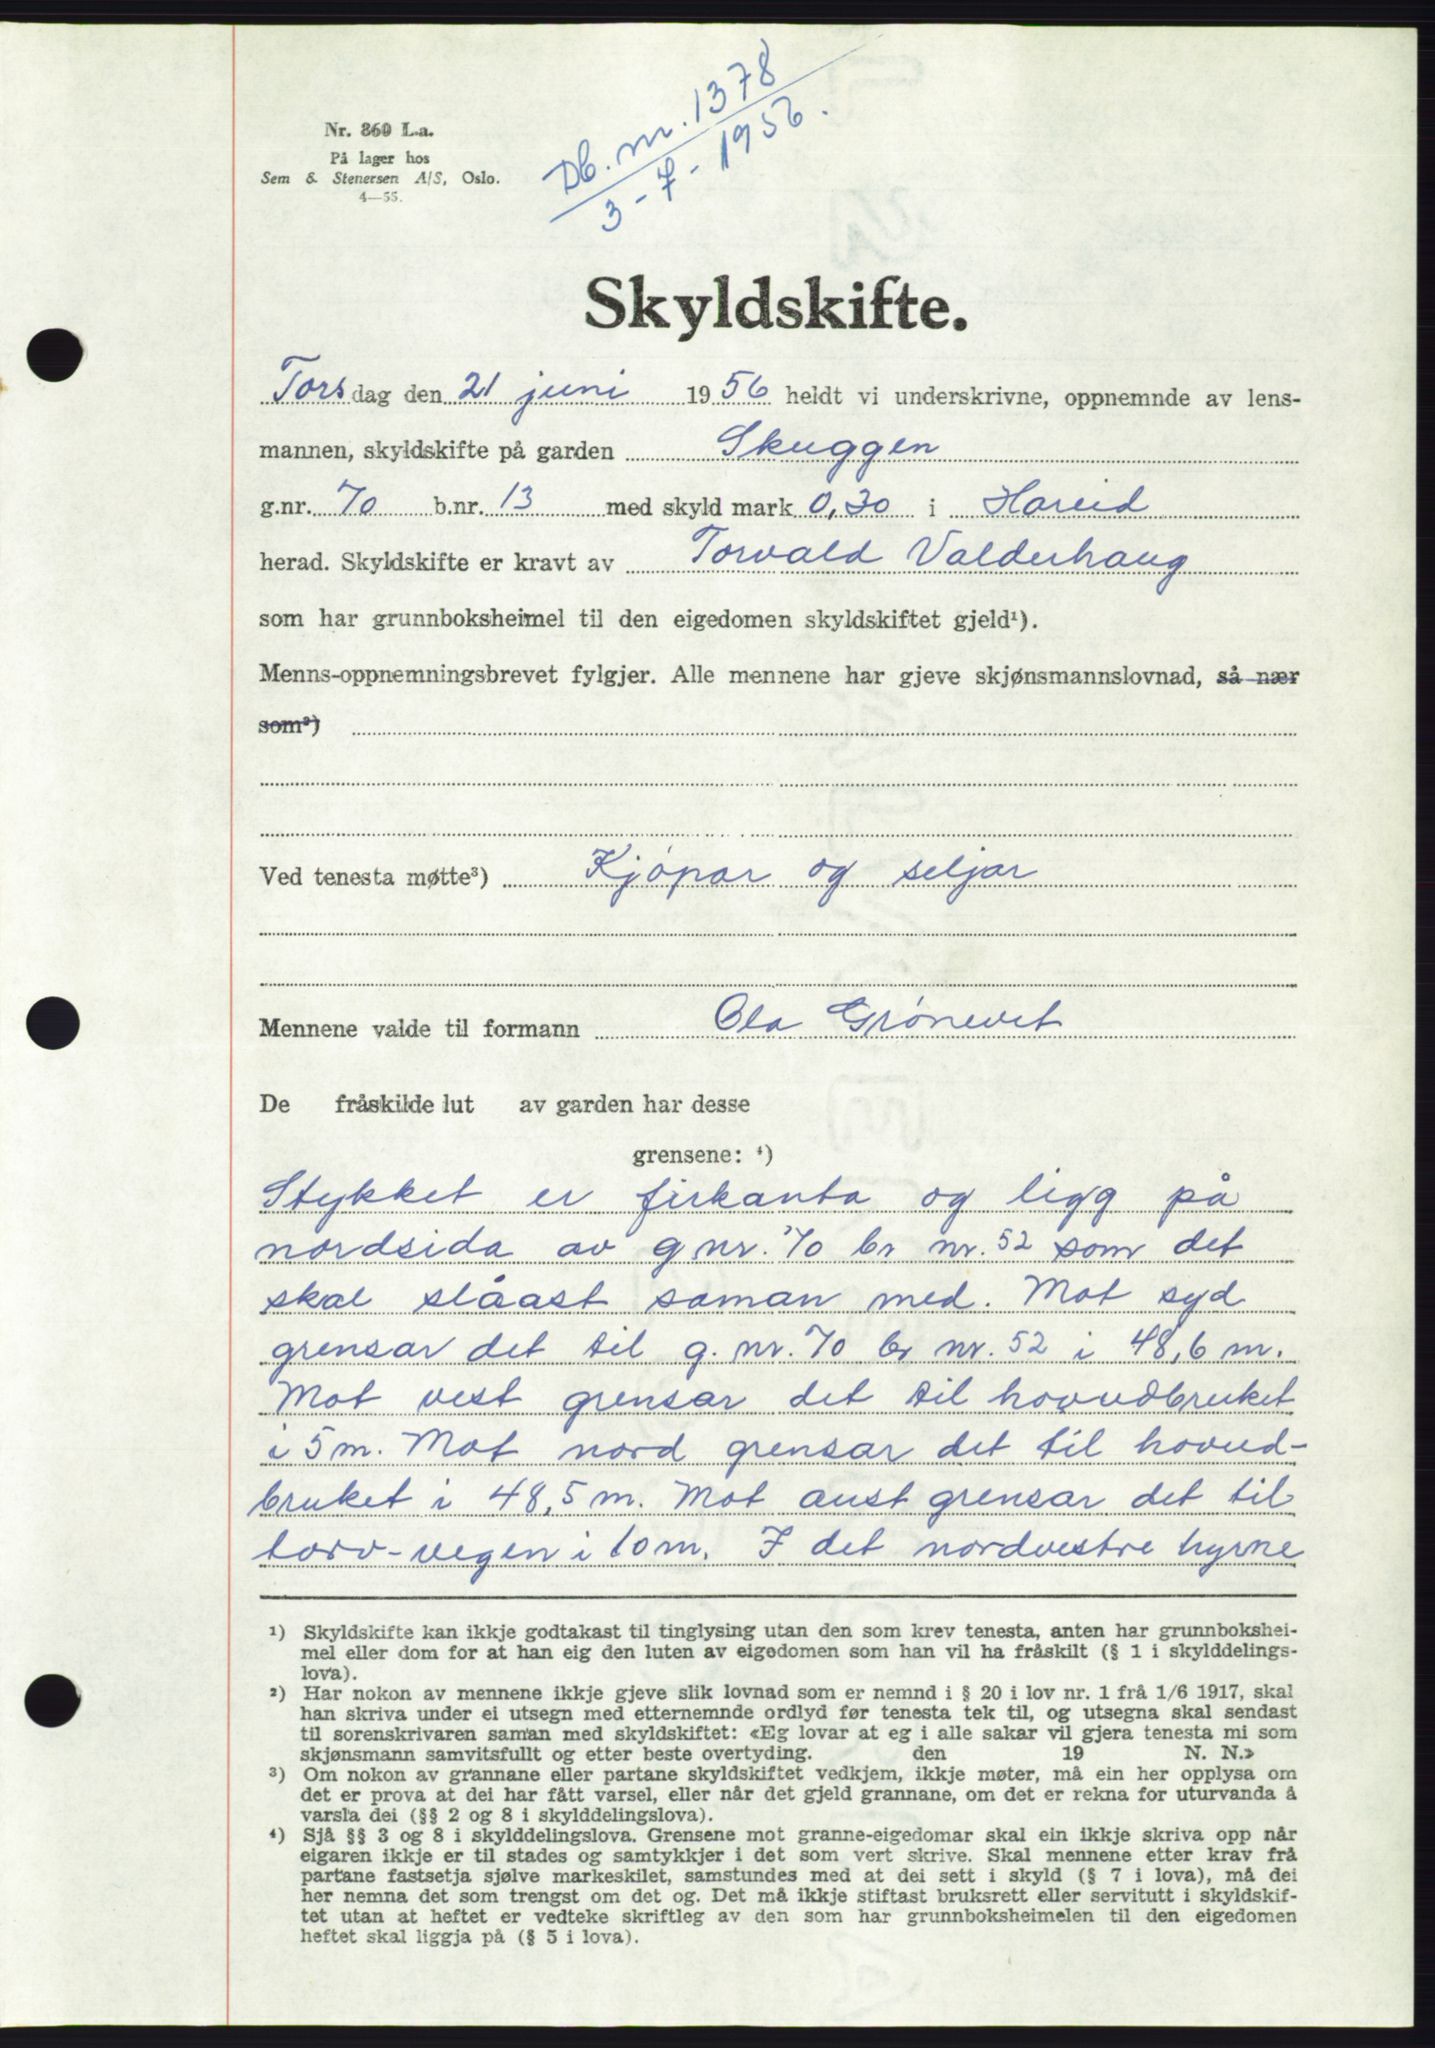 Db. nr. 1378
3-7-1956.
Nr. 860 L.a.
På lager hos
Sem & Stenersen A/S, Oslo.
4—55.
Skyldskifte.
Torsdag den 21 juni 1956 heldt vi underskrivne, oppnemnde av lens-
mannen, skyldskifte på garden Skuggen
g.nr. 70 b.nr. 13 med skyld mark 0,30 i Hareid
herad. Skyldskifte er kravt av Torvald Valderhaug
som har grunnboksheimel til den eigedomen skyldskiftet gjeld¹).
Menns-oppnemningsbrevet fylgjer. Alle mennene har gjeve skjønsmannslovnad, så nær
som²)
Ved tenesta møtte³) Kjøpar og seljar
Mennene valde til formann Ola Grønevet
De fråskilde lut av garden har desse
grensene: ⁴)
Stykket er firkanta og ligg på
nordsida av g nr. 70 br nr. 52 som det
skal slåast saman med. Mot syd
grensar det til g. nr. 70 br nr. 52 i 48,6 m.
Mot vest grensar det til hovudbruket
i 5 m. Mot nord grensar det til hovud-
bruket i 48,5 m. Mot aust grensar det til
torv-vegen i 10 m. I det nordvestre hyrne
¹) Skyldskifte kan ikkje godtakast til tinglysing utan den som krev tenesta, anten har grunnbokshei-
mel eller dom for at han eig den luten av eigedomen som han vil ha fråskilt (§ 1 i skylddelings-
lova).
²) Har nokon av mennene ikkje gjeve slik lovnad som er nemnd i § 20 i lov nr. 1 frå 1/6 1917, skal
han skriva under ei utsegn med etternemnde ordlyd før tenesta tek til, og utsegna skal sendast
til sorenskrivaren saman med skyldskiftet: «Eg lovar at eg i alle sakar vil gjera tenesta mi som
skjønsmann samvitsfullt og etter beste overtyding. den 19 N. N.»
³) Om nokon av grannane eller partane skyldskiftet vedkjem, ikkje møter, må ein her opplysa om
det er prova at dei har fått varsel, eller når det gjeld grannane, om det er rekna for uturvanda å
varsla dei (§§ 2 og 8 i skylddelingslova).
⁴) Sjå §§ 3 og 8 i skylddelingslova. Grensene mot granne-eigedomar skal ein ikkje skriva opp når
eigaren ikkje er til stades og samtykkjer i det som vert skrive. Skal mennene etter krav frå
partane fastsetja sjølve markeskilet, samstundes med at dei sett i skyld (§ 7 i lova), må dei
her nemna det som trengst om det og. Det må ikkje stiftast bruksrett eller servitutt i skyldskif-
tet utan at heftet er vedteke skriftleg av den som har grunnboksheimelen til den eigedomen
heftet skal liggja på (§ 5 i lova).